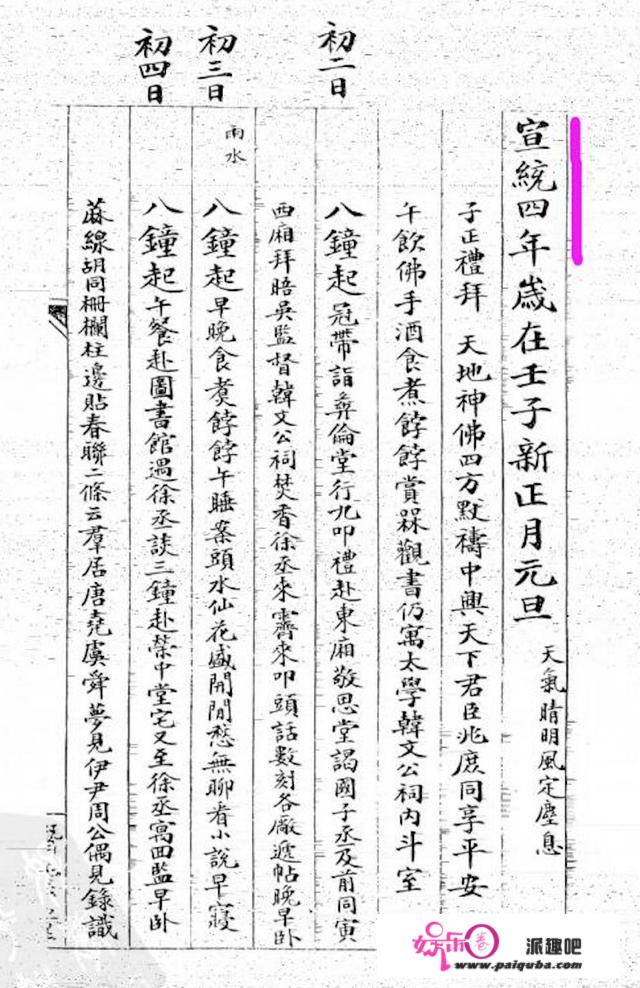 宣統四年歲在壬子新正月元旦 天氣晴明風定塵息
子正禮拜 天地神佛四方默禱中興天下君臣兆庶同享平安
午飲佛手酒食煮餑餑賞眾觀書仍寓太學韓文公祠內斗室
初二日
八鐘起冠帶詣彝倫堂行九叩禮赴東廂敬思堂謁國子丞及前同寅
西廂拜晤吳監督韓文公祠焚香徐丞來霽來叩頭話數刻各廠遞帖晚早卧
初三日
雨水
八鐘起早晚食煑餑餑午睡案頭水仙花盛開閒愁無聊看小說早寢
初四日
八鐘起午餐赴圖書館遇徐丞談三鐘赴榮中堂宅又至徐丞寓回監早卧
蔴線胡同柵欄柱邊貼春聯二條云羣居唐堯虞舜夢見伊尹周公偶見錄識
娱乐圈 派趣吧
www.paiquba.com